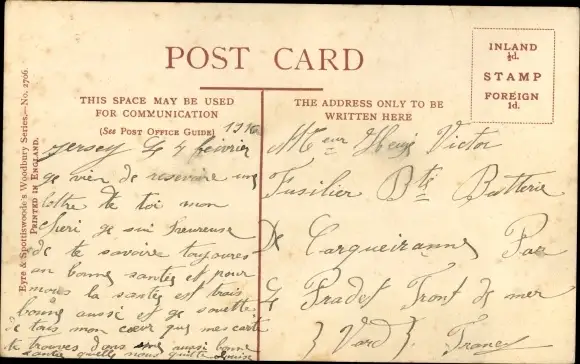 POST CARD
INLAND
½d.
STAMP
FOREIGN
1d.
THIS SPACE MAY BE USED
FOR COMMUNICATION
(See Post Office Guide)
THE ADDRESS ONLY TO BE
WRITTEN HERE
Eyre & Spottiswoode's Woodbury Series.—No. 2706.
PRINTED IN ENGLAND.
Jersey Le 4 fevrier 1910
ge vien de resevoire une
lettre de toi mon
cheri ge sui heureuse
de te savoire toujoures
an bonne santez et pour
nous la santez est trais
bonne aussi et ge souette
de tous mon cœur que mes carte
te trouves dans une aussi bonne
santez quelle nous quitte
Mr eur Victor
Fusilier Bte Batterie
De Carqueiranne Par
Le Pradet Front de mer
Vard France